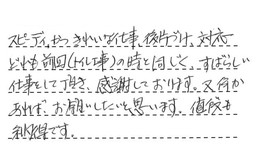 スピーディかつきれいな仕事、後片づけ、対応
どれも前回(トイレ工事)の時と同じく、すばらしい
仕事をして頂き、感謝しております。又何か
あれば、お願いしたいと思います。値段も
納得です。